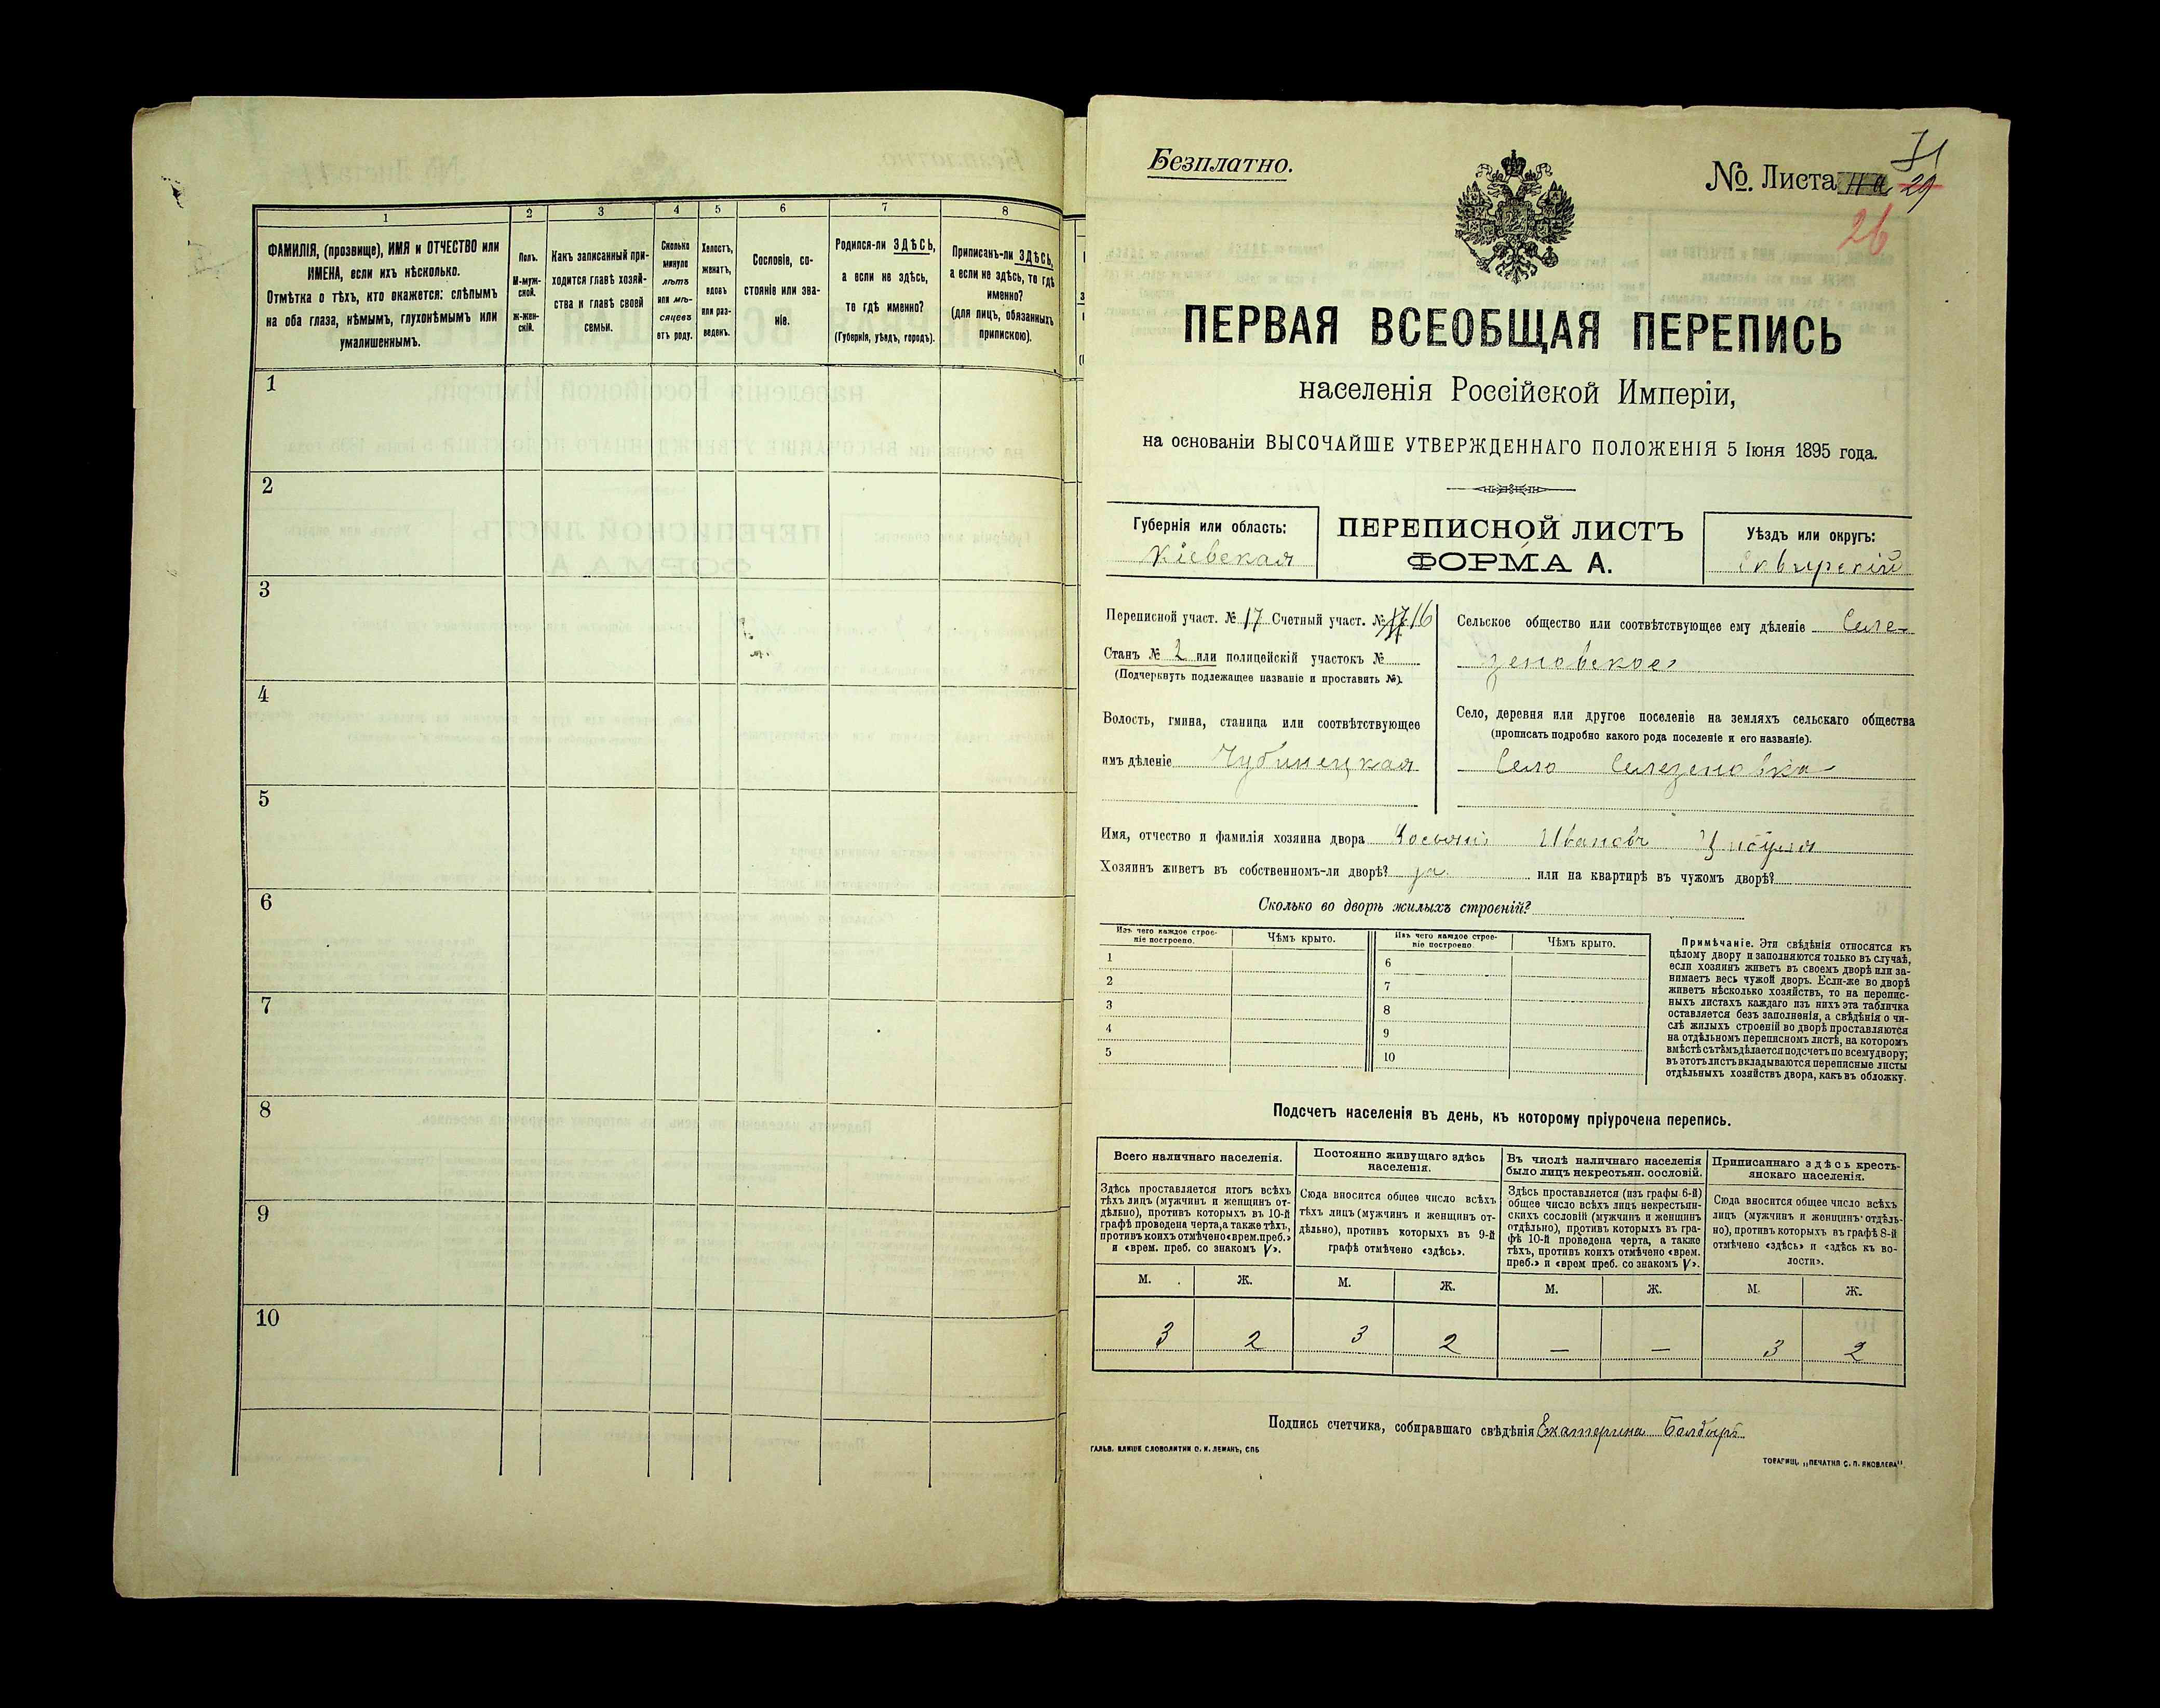 1
2
3
4
5
6
7
8
ФАМИЛІЯ, (прозвище), ИМЯ и ОТЧЕСТВО или
ИМЕНА, если ихъ нѣсколько.
Отмѣтка о тѣхъ, кто окажется: слѣпымъ
на оба глаза, нѣмымъ, глухонѣмымъ или
умалишеннымъ.
Полъ.
М-муж-
ской.
ж-жен-
скій.
Какъ записанный при-
ходится главѣ хозяй-
ства и главѣ своей
семьи.
Сколько
минуло
лѣтъ
или мѣ-
сяцевъ
отъ роду.
Холостъ,
женатъ,
вдовъ
или раз-
веденъ.
Сословіе, со-
стояніе или зва-
ніе.
Родился-ли ЗДѢСЬ,
а если не здѣсь,
то гдѣ именно?
(Губернія, уѣздъ, городъ).
Приписанъ-ли ЗДѢСЬ,
а если не здѣсь, то гдѣ
именно?
(для лицъ, обязанныхъ
припискою).
1
2
3
4
5
6
7
8
9
10
Безплатно.
№. Листа 29
31
26
ПЕРВАЯ ВСЕОБЩАЯ ПЕРЕПИСЬ
населенія Россійской Имперіи,
на основаніи ВЫСОЧАЙШЕ УТВЕРЖДЕННАГО ПОЛОЖЕНІЯ 5 Іюня 1895 года.
Губернія или область:
Кіевская
ПЕРЕПИСНОЙ ЛИСТЪ
ФОРМА А.
Уѣздъ или округъ:
Сквирскій
Переписной участ. № 17 Счетный участ. № 16
Станъ № 2 или полицейскій участокъ №
(Подчеркнуть подлежащее названіе и проставить №).
Волость, гмина, станица или соотвѣтствующее
имъ дѣленіе Чубинецкая
Сельское общество или соотвѣтствующее ему дѣленіе Селе-
зеновское
Село, деревня или другое поселеніе на земляхъ сельскаго общества
(прописать подробно какого рода поселеніе и его названіе).
Село Селезеновка
Имя, отчество и фамилія хозяина двора Ивановъ
Хозяинъ живетъ въ собственномъ-ли дворѣ? да или на квартирѣ въ чужомъ дворѣ?
Сколько во дворѣ жилыхъ строеній?
Изъ чего каждое строе-
ніе построено.
Чѣмъ крыто.
Изъ чего каждое строе-
ніе построено.
Чѣмъ крыто.
1
2
3
4
5
6
7
8
9
10
Примѣчаніе. Эти свѣдѣнія относятся къ
цѣлому двору и заполняются только въ случаѣ,
если хозяинъ живетъ въ своемъ дворѣ или за-
нимаетъ весь чужой дворъ. Если-же во дворѣ
живетъ нѣсколько хозяйствъ, то на перепис-
ныхъ листахъ каждаго изъ нихъ эта табличка
оставляется безъ заполненія, а свѣдѣнія о чи-
слѣ жилыхъ строеній во дворѣ проставляются
на отдѣльномъ переписномъ листѣ, на которомъ
вмѣстѣ съ тѣмъ дѣлается подсчетъ по всему двору;
въ этотъ листъ вкладываются переписные листы
отдѣльныхъ хозяйствъ двора, какъ въ обложку.
Подсчетъ населенія въ день, къ которому пріурочена перепись.
Всего наличнаго населенія.
Здѣсь проставляется итогъ всѣхъ
тѣхъ лицъ (мужчинъ и женщинъ от-
дѣльно), противъ которыхъ въ 10-й
графѣ проведена черта, а также тѣхъ,
противъ коихъ отмѣчено «врем. преб.»
и «врем. преб. со знакомъ V».
Постоянно живущаго здѣсь
населенія.
Сюда вносится общее число всѣхъ
тѣхъ лицъ (мужчинъ и женщинъ от-
дѣльно), противъ которыхъ въ 9-й
графѣ отмѣчено «здѣсь».
Въ числѣ наличнаго населенія
было лицъ некрестьян. сословій.
Здѣсь проставляется (изъ графы 6-й)
общее число всѣхъ лицъ некрестьян-
скихъ сословій (мужчинъ и женщинъ
отдѣльно), противъ которыхъ въ гра-
фѣ 10-й проведена черта, а также
тѣхъ, противъ коихъ отмѣчено «врем.
преб.» и «врем преб. со знакомъ V».
Приписаннаго здѣсь кресть-
янскаго населенія.
Сюда вносится общее число всѣхъ
лицъ (мужчинъ и женщинъ отдѣль-
но), противъ которыхъ въ графѣ 8-й
отмѣчено «здѣсь» и «здѣсь къ во-
лости».
М. Ж. М. Ж. М. Ж. М. Ж.
3 2 3 2 — — 3 2
Подпись счетчика, собиравшаго свѣдѣнія Екатерина
ГАЛЬВ. КЛИШЕ СЛОВОЛИТНИ О. И. ЛЕМАНЪ, СПБ
ТОВАРИЩ. „ПЕЧАТНЯ С. П. ЯКОВЛЕВА".